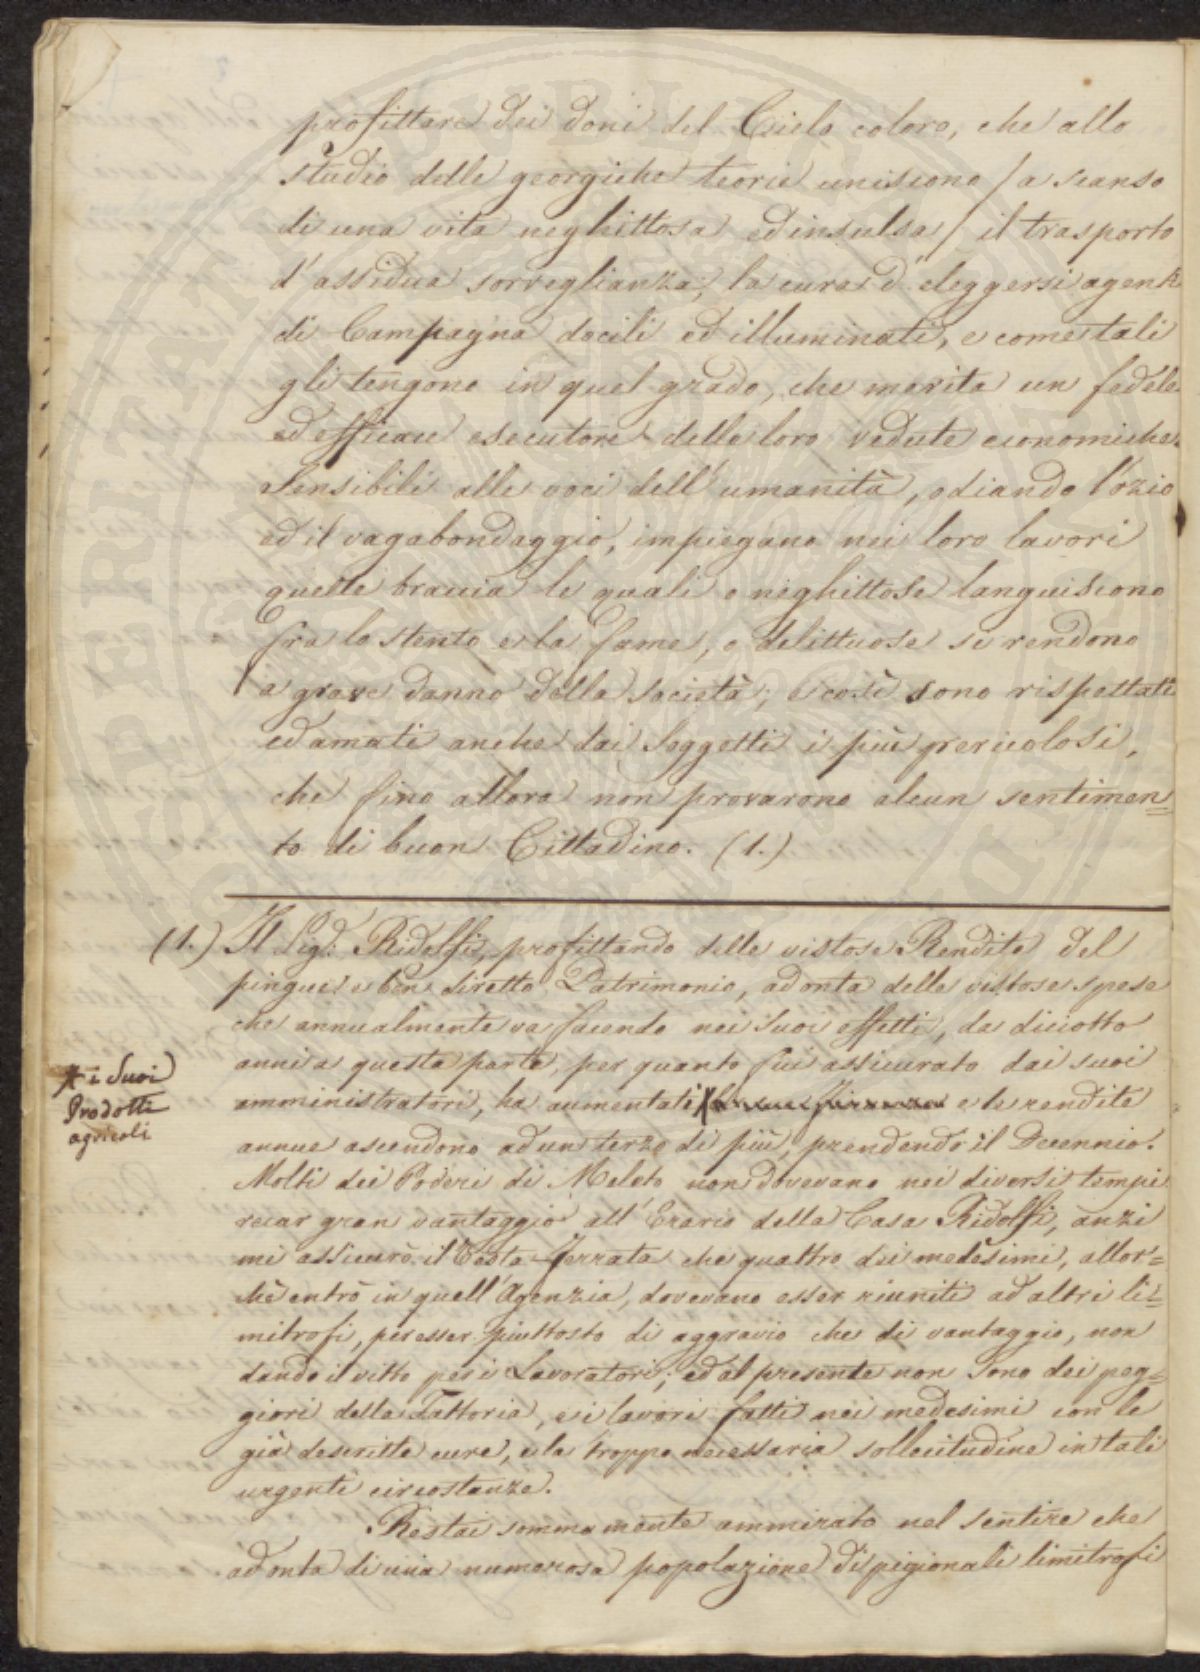 profittare dei doni del Cielo coloro, che allo
studio delle georgiche teorie uniscono / a scanso
di una vita neghittosa ed insulsa / il trasporto
d'assidua sorveglianza; la cura d'eleggersi agenti
di Campagna docili ed illuminati, e come tali
gli tengono in quel grado, che merita un fedele
ed efficace esecutore delle loro vedute economiche.
Sensibili alle voci dell'umanità, odiando l'ozio
ed il vagabondaggio, impiegano nei loro lavori
quelle braccia le quali o neghittose languiscono
fra lo stento e la fame, o delittuose si rendono
a grave danno della società; e così sono rispettati
ed amati anche dai Soggetti i più pericolosi,
che fino allora non provarono alcun sentimen=
to di buon Cittadino. (1.)
(1.) Il Sig.r Ridolfi, profittando delle vistose Rendite del
pingue e ben diretto Patrimonio, ad onta delle vistose spese
che annualmente va facendo nei suoi effetti, da diciotto
anni a questa parte, per quanto fui assicurato dai suoi
amministratori, ha aumentati X e le rendite
X i Suoi
Prodotti
agricoli
annue ascendono ad un terzo di più, prendendo il Decennio.
Molti dei Poderi di Meleto non dovevano nei diversi tempi
recar gran vantaggio all'Erario della Casa Ridolfi, anzi
mi assicurò il Testa-ferrata che quattro dei medesimi, allor=
chè entrò in quell'Agenzia, dovevano esser riuniti ad altri li=
mitrofi, per esser piuttosto di aggravio che di vantaggio, non
dando il vitto per i Lavoratori; ed al presente non sono dei peg=
giori della Fattoria, e i lavori fatti nei medesimi con le
già descritte cure, e la troppo necessaria sollecitudine in tali
urgenti circostanze.
Restai sommamente ammirato nel sentire che
ad onta di una numerosa popolazione di pigionali limitrofi
SPERITATI PUBLICAE